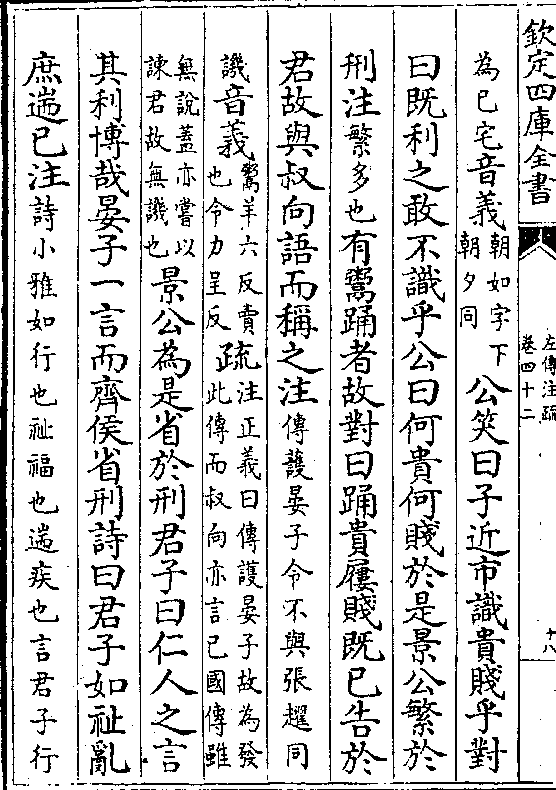 欽定四庫全書
左傳注疏
卷四十二
十八
為已宅音義朝如字下朝夕同公笑曰子近市識貴賤乎對
曰既利之敢不識乎公曰何貴何賤於是景公繁於
刑注繁多也有鬻踊者故對曰踊貴屨賤既已告於
君故與叔向語而稱之注傳護晏子令不與張趯同
譏音義鬻羊六反賣也令力呈反疏注正義曰傳護晏子故為發此傳而叔向亦言已國傳雖
無說蓋亦嘗以諫君故無譏也景公為是省於刑君子曰仁人之言
其利博哉晏子一言而齊侯省刑詩曰君子如祉亂
庶遄已注詩小雅如行也祉福也遄疾也言君子行